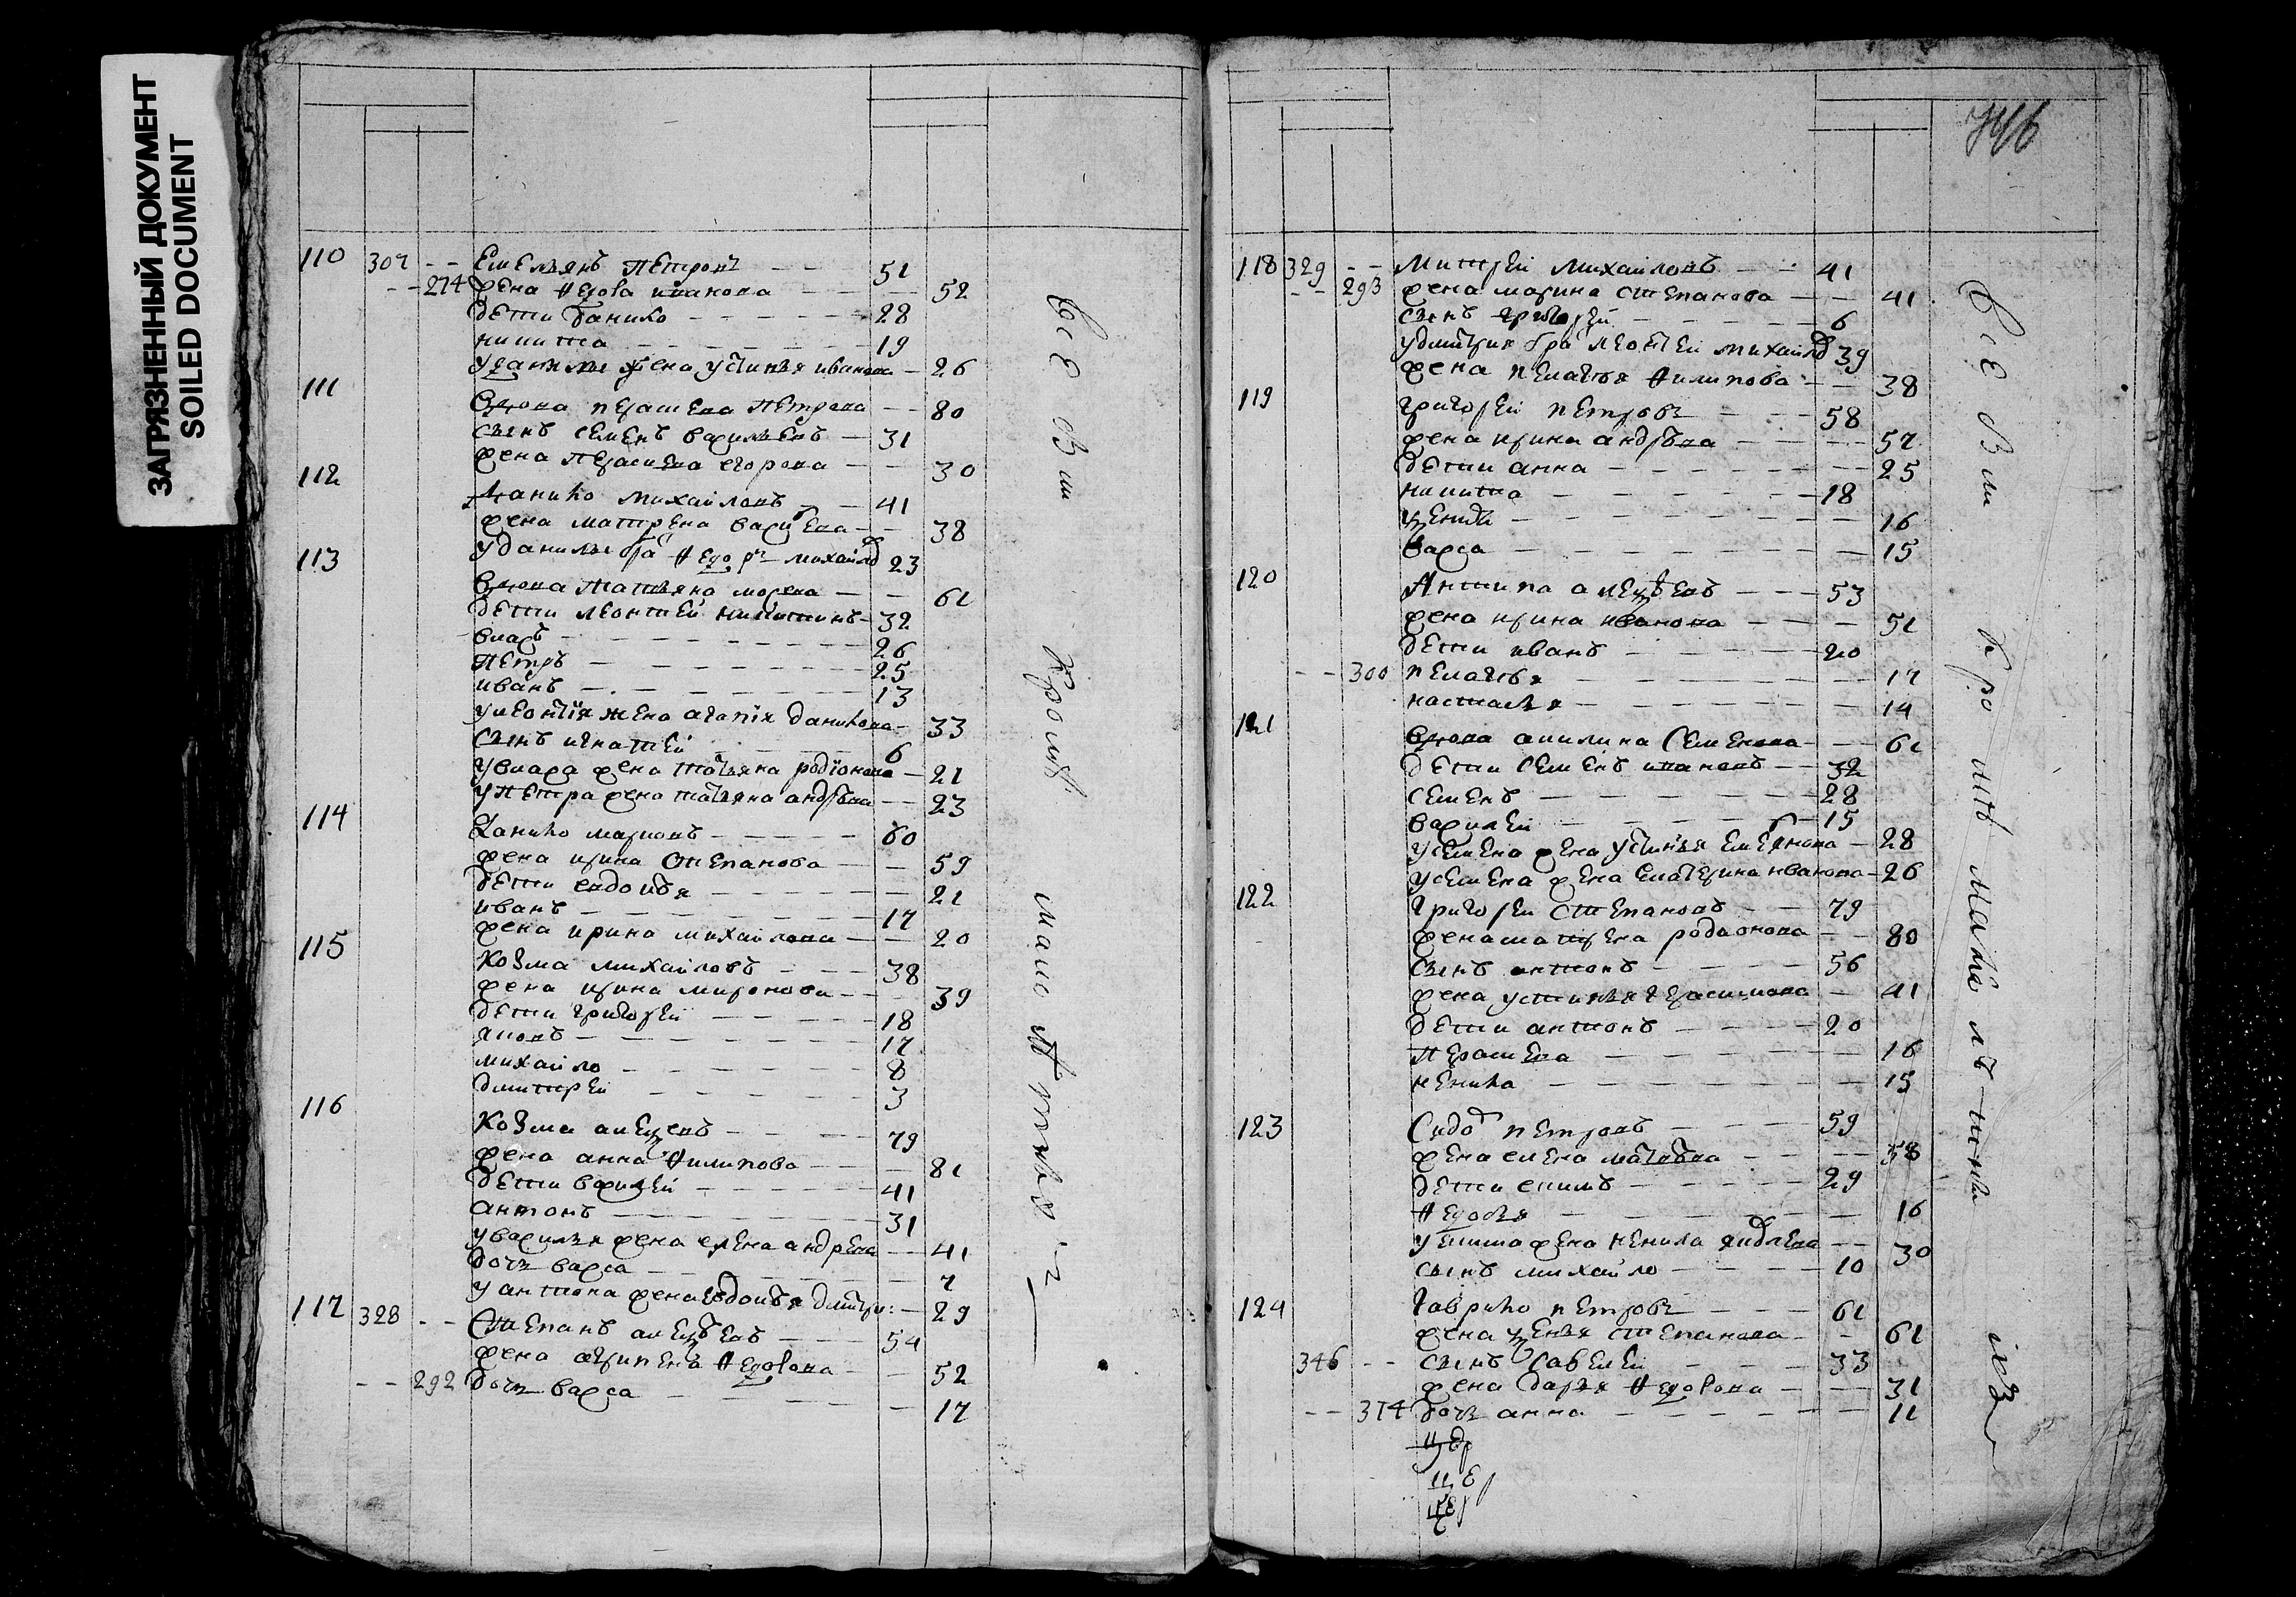 ЗАГРЯЗНЕННЫЙ ДОКУМЕНТ
SOILED DOCUMENT
110 307 -- Емельянъ Петровъ -- 51
-- 274 жена Федора иванова -- 52
дети Данило -- 28
никита -- 19
у данилы жена устинья иванова -- 26
111 вдова перасковя Петрова -- 80
сынъ семенъ василевъ -- 31
жена перасковя егорова -- 30
112 Данило михайловъ -- 41
жена матрена василева -- 38
у данилы бра Федоръ михайло 23
113 вдова татьяна -- 61
дети леонтеи никитинъ -- 32
власъ -- 26
петръ -- 25
иванъ -- 13
у леонтія жена агапія данилова -- 33
сынъ игнатей -- 6
у власа жена татьяна родіонова -- 21
у петра жена татьяна андрѣева -- 23
114 Данило марковъ -- 60
жена ирина степанова -- 59
дети евдокья -- 21
иванъ -- 17
жена ирина михайлова -- 20
115 Козма михайловъ -- 38
жена ирина миронова -- 39
дети григорей -- 18
яковъ -- 17
михайло -- 8
дмитрей -- 3
116 Козма алексеевъ -- 79
жена анна Филипова -- 81
дети василей -- 41
антонъ -- 31
у василья жена елена андреева -- 41
дочь васса -- 7
у антона жена евдокья дмитри: -- 29
117 328 -- Степанъ алексѣевъ -- 54
жена агрипена Федорова -- 52
-- 292 дочь васса -- 17
все они кроме
746
118 329 -- Митрей Михайловъ -- 41
-- 293 жена марина степанова -- 41
сынъ григорей -- 6
у дмитрия бра леонтей михайло 39
жена пелагья Филипова -- 38
119 Григорей петровъ -- 58
жена ирина андрѣева -- 57
дети анна -- 25
никита -- 18
-- 16
васса -- 15
120 Антипа алексѣевъ -- 53
жена ирина иванова -- 51
дети иванъ -- 20
-- 300 пелагья -- 17
настасья -- 14
121 вдова акилина Семенова -- 61
дети семенъ ивановъ -- 32
семенъ -- 28
василей -- 15
у семена жена устинья емелянова -- 28
у семена жена екатерина иванова -- 26
122 Григорей степановъ -- 79
жена матрена родионова -- 80
сынъ антонъ -- 56
жена устинья герасимова -- 41
дети антонъ -- 20
перасковя -- 16
ненила -- 15
123 Сидоръ петровъ -- 59
жена елена матвѣева -- 58
дети екимъ -- 29
Федосья -- 16
у екима жена ненила яковлева -- 30
сынъ михайло -- 10
124 Гаврило петровъ -- 61
жена ксенья степанова -- 61
346 -- сынъ савелей -- 33
жена дарья Федорова -- 31
-- 314 дочь анна -- 11
цер
цер
цер
все они кроме малолѣтныхъ